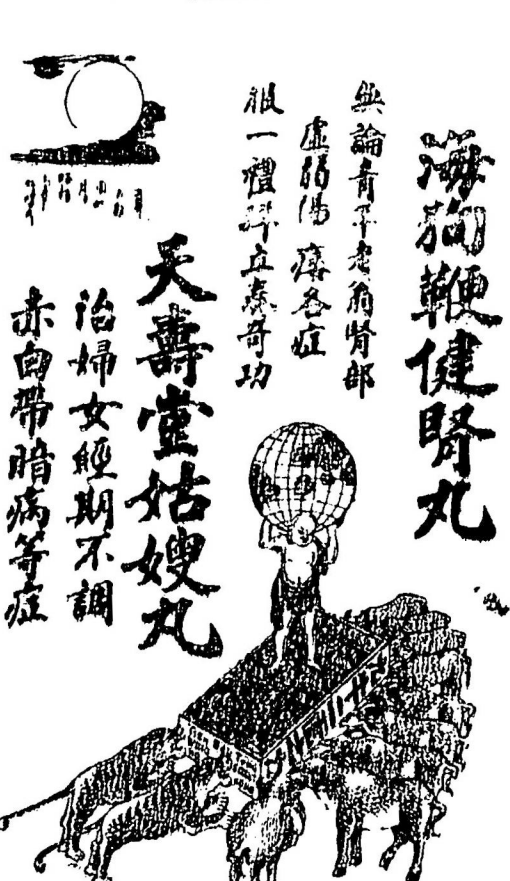 海狗鞭健腎丸
無論青年老翁腎部
虛弱陽痿各症
服一禮拜立奏奇功
天壽堂姑嫂丸
治婦女經期不調
赤白帶暗病等症